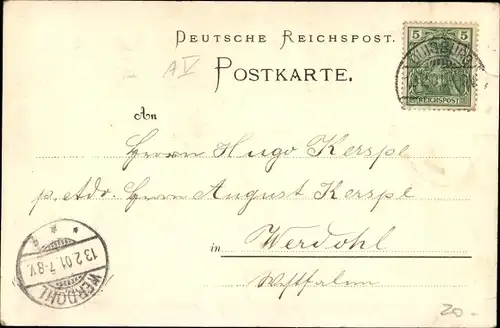 DEUTSCHE REICHSPOST.
5 5
REICHSPOST
A V
POSTKARTE.
An
Herrn Hugo Kerspe
p. Adr. Herrn August Kerspe
in Werdohl
Westfalen
WERDOHL
13.2.01.7-8V.
20.-